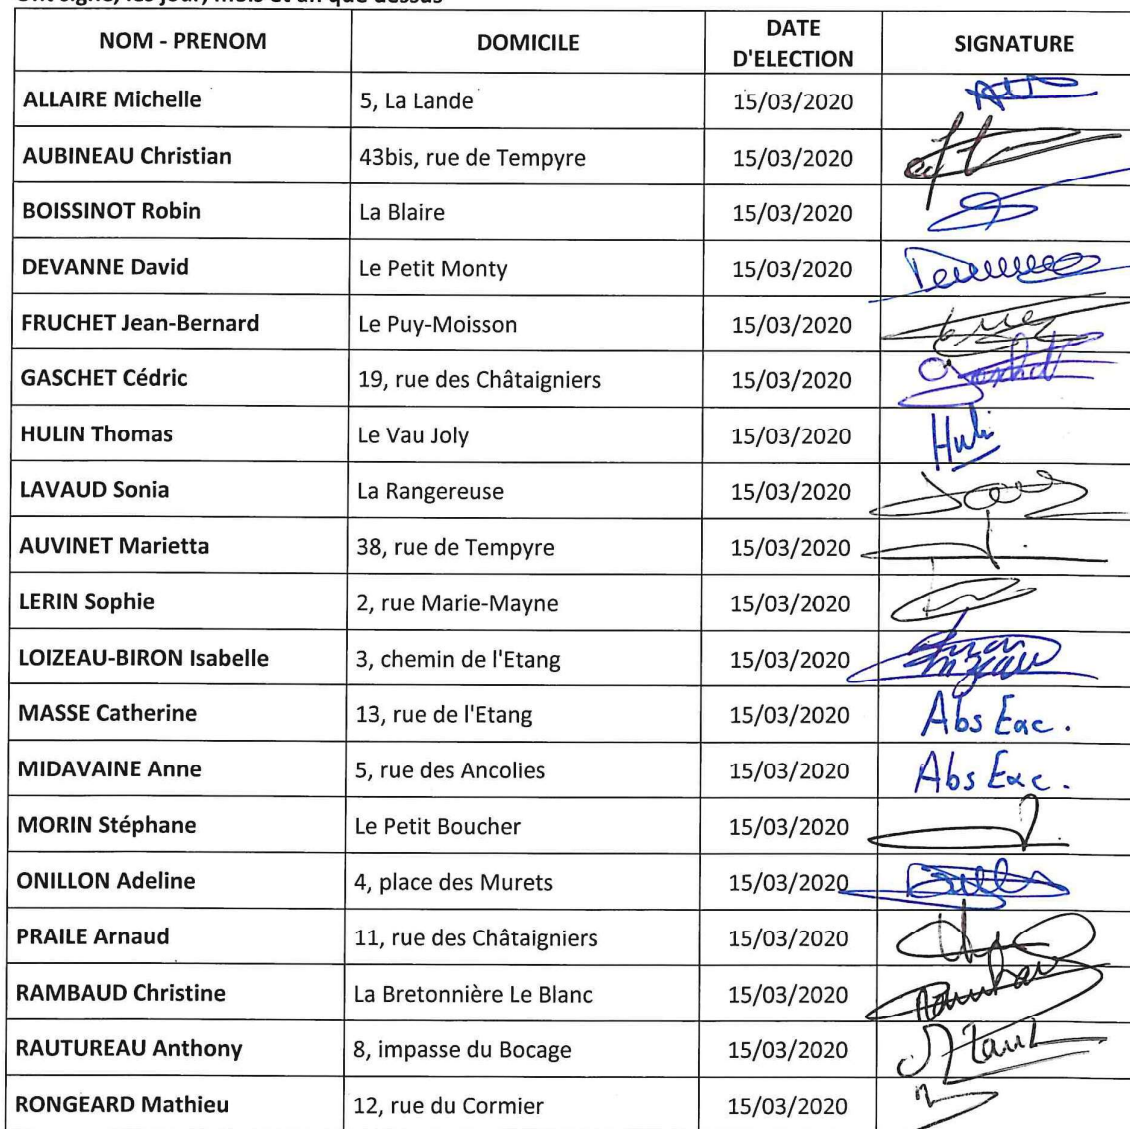 Ont signé, les jour, mois et an que dessus
NOM - PRENOM DOMICILE DATE D'ELECTION SIGNATURE
ALLAIRE Michelle 5, La Lande 15/03/2020
AUBINEAU Christian 43bis, rue de Tempyre 15/03/2020
BOISSINOT Robin La Blaire 15/03/2020
DEVANNE David Le Petit Monty 15/03/2020
FRUCHET Jean-Bernard Le Puy-Moisson 15/03/2020
GASCHET Cédric 19, rue des Châtaigniers 15/03/2020
HULIN Thomas Le Vau Joly 15/03/2020
LAVAUD Sonia La Rangereuse 15/03/2020
AUVINET Marietta 38, rue de Tempyre 15/03/2020
LERIN Sophie 2, rue Marie-Mayne 15/03/2020
LOIZEAU-BIRON Isabelle 3, chemin de l'Etang 15/03/2020
MASSE Catherine 13, rue de l'Etang 15/03/2020 Abs Exc.
MIDAVAINE Anne 5, rue des Ancolies 15/03/2020 Abs Exc.
MORIN Stéphane Le Petit Boucher 15/03/2020
ONILLON Adeline 4, place des Murets 15/03/2020
PRAILE Arnaud 11, rue des Châtaigniers 15/03/2020
RAMBAUD Christine La Bretonnière Le Blanc 15/03/2020
RAUTUREAU Anthony 8, impasse du Bocage 15/03/2020
RONGEARD Mathieu 12, rue du Cormier 15/03/2020